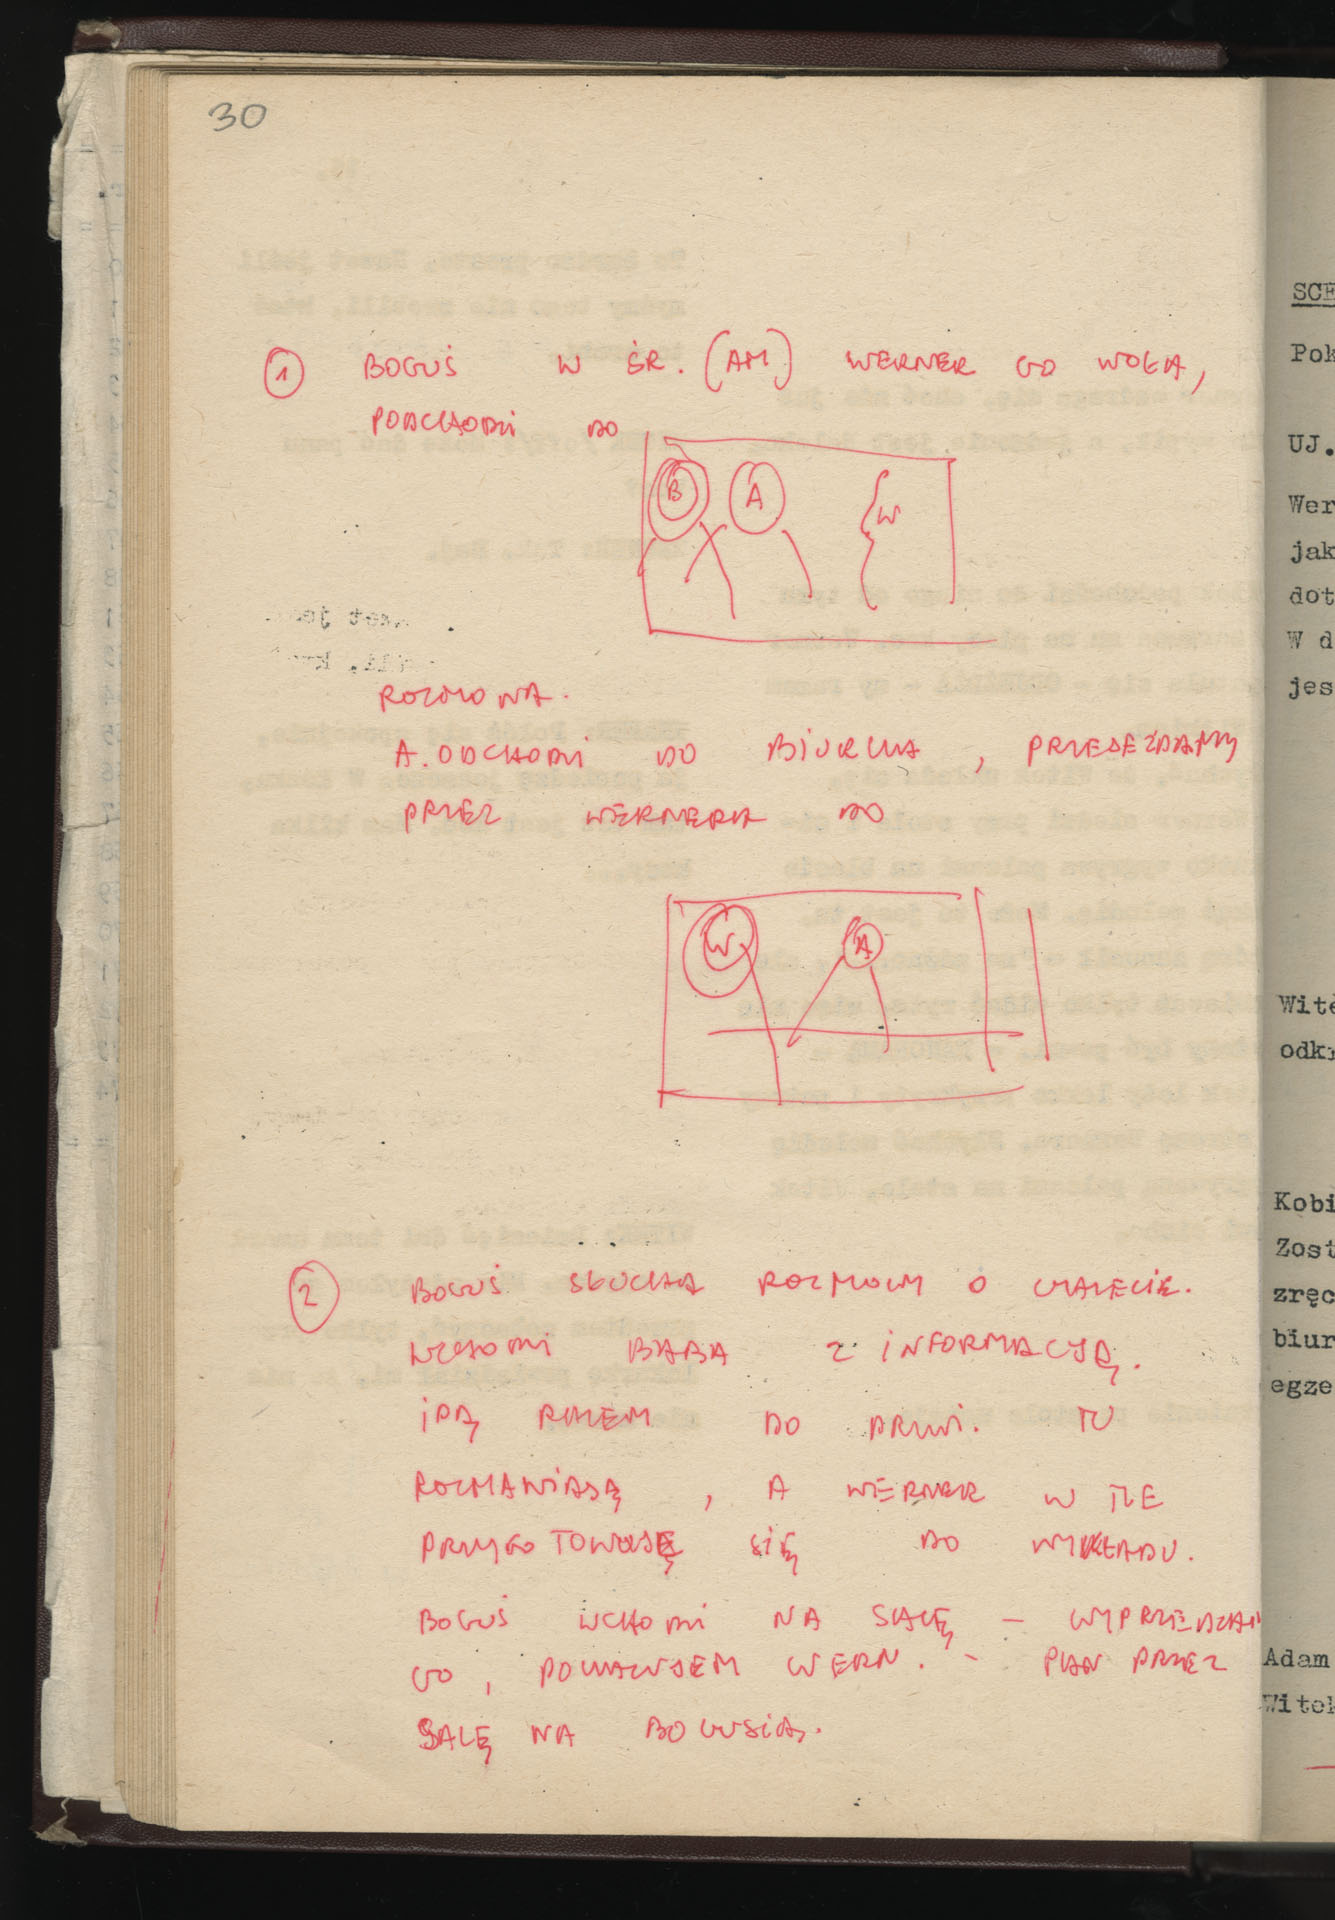 30
① BOGUŚ W ŚR. (AM) WERNER GO WOŁA,
PODCHODZI DO
B A W
ROZMOWA.
A. ODCHODZI DO BIURKA, PRZEJEŻDŻAMY
PRZEZ WERNERA DO
W A
② BOGUŚ SŁUCHA ROZMOWY O
WCHODZI BABA Z INFORMACJĄ.
IDĄ RAZEM DO DRZWI. TU
ROZMAWIAJĄ, A WERNER W TLE
PRZYGOTOWUJE SIĘ DO WYKŁADU.
BOGUŚ WCHODZI NA SALĘ – WYPRZEDZAM
GO, POKAZUJEM WERN. – PLAN PRZEZ
SALĘ NA BOGUSIA.
SCE
Pok
UJ.
Wer
jak
dot
W d
jes
Wite
odkr
Kobi
Zost
zręc
biur
egze
Adam
Witek